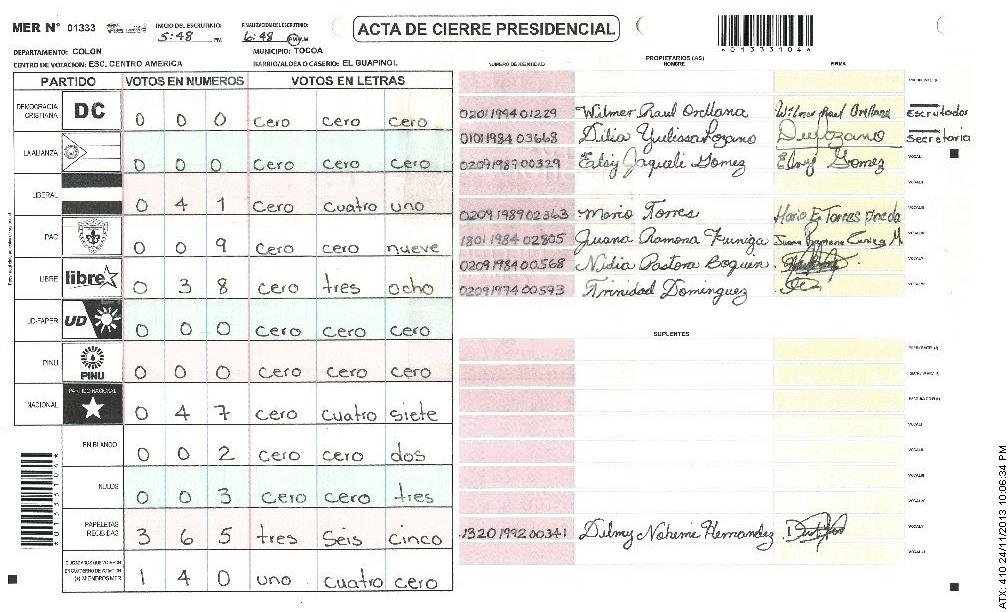 MER Nº 01333
INICIO DEL ESCRUTINIO: 5:48 PM
FINALIZACION DEL ESCRUTINIO: 6:48 PM
ACTA DE CIERRE PRESIDENCIAL
*013331044*
DEPARTAMENTO: COLON
MUNICIPIO: TOCOA
CENTRO DE VOTACION: ESC. CENTRO AMERICA
BARRIO/ALDEA O CASERIO: EL GUAPINOL
PARTIDO VOTOS EN NUMEROS VOTOS EN LETRAS
DEMOCRACIA CRISTIANA DC 0 0 0 cero cero cero
LA ALIANZA 0 0 0 cero cero cero
LIBERAL 0 4 1 cero cuatro uno
PAC 0 0 9 cero cero nueve
LIBRE libre 0 3 8 cero tres ocho
UD-FAPER UD 0 0 0 cero cero cero
PINU PINU 0 0 0 cero cero cero
NACIONAL PARTIDO NACIONAL 0 4 7 cero cuatro siete
EN BLANCO 0 0 2 cero cero dos
NULOS 0 0 3 cero cero tres
PAPELETAS RECIBIDAS 3 6 5 tres seis cinco
CIUDADANOS QUE VOTARON EN CUADERNO DE VOTACION (+) MIEMBROS MER 1 4 0 uno cuatro cero
PROPIETARIOS (AS)
NUMERO DE IDENTIDAD NOMBRE FIRMA
0201199401229 Wilmer Raul Orellana Wilmer Raul Orellana Escrutador
0101198403668 Dilia Yulissa Lozano DLozano Secretaria
0209198900329 Elsy Jaqueli Gomez Elsy Gomez
0209198902363 Mario Torres Mario E Torres Pineda
1801198402805 Juana Ramona Zuniga Juana Ramona Zuniga M.
0209198400568 Nidia Pastora Boquin
0209197400593 Trinidad Dominguez
SUPLENTES
1320199200341 Delmy Nohemi Hernandez
ATX: 410 24/11/2013 10:06:34 PM